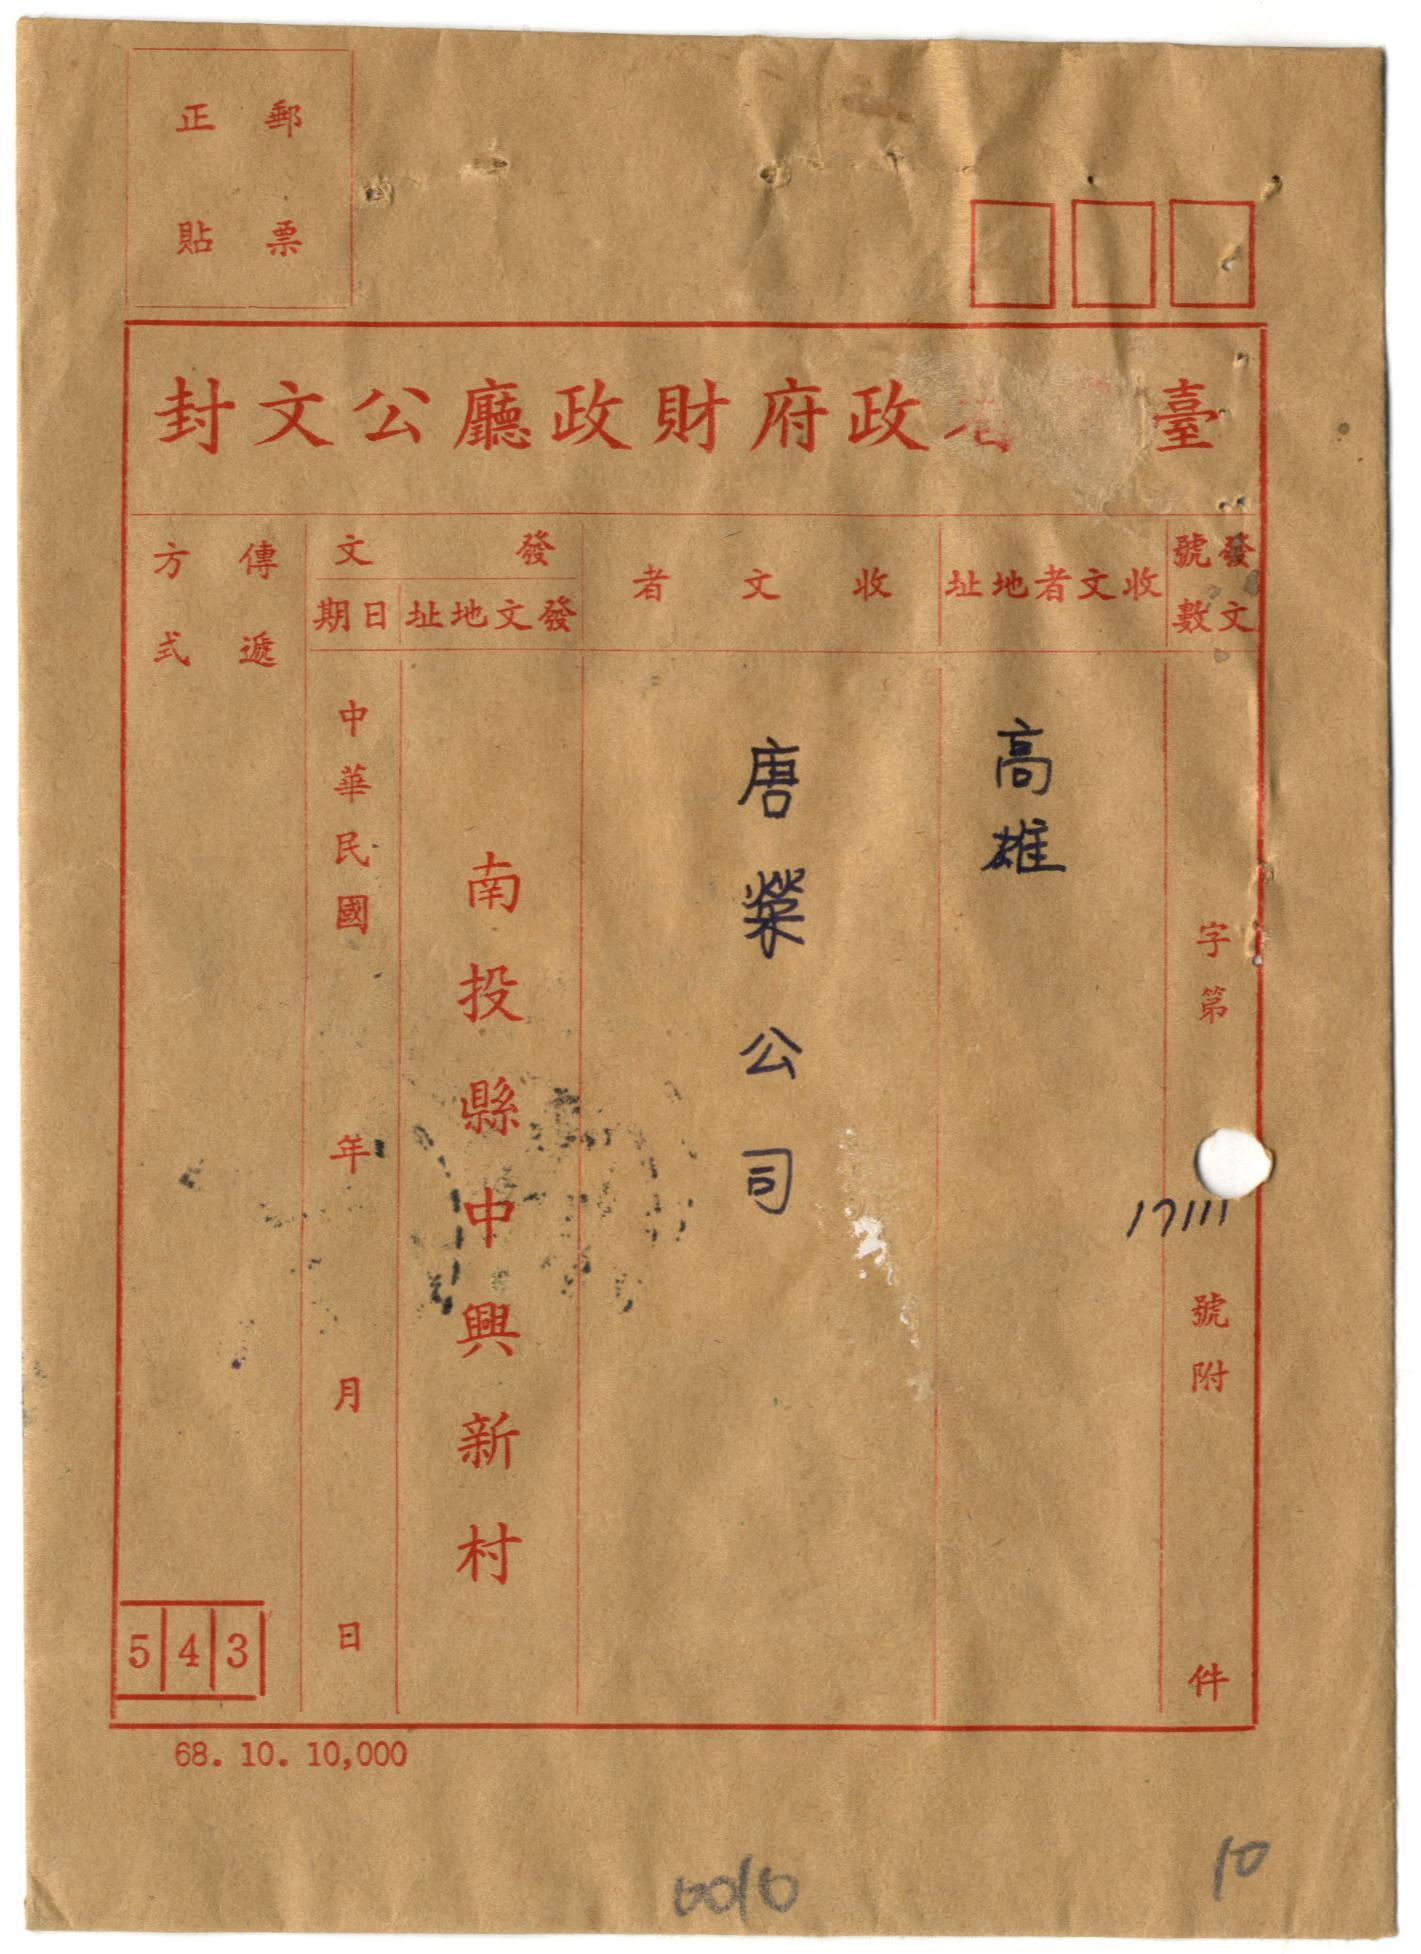 郵票
正貼
臺 政府財政廳公文封
發文
號數
收文者地址
收文者
發文
發文地址
日期
傳遞
方式
字第
17111
號附
件
高雄
唐榮公司
南投縣中興新村
中華民國
年
月
日
543
68. 10. 10,000
10